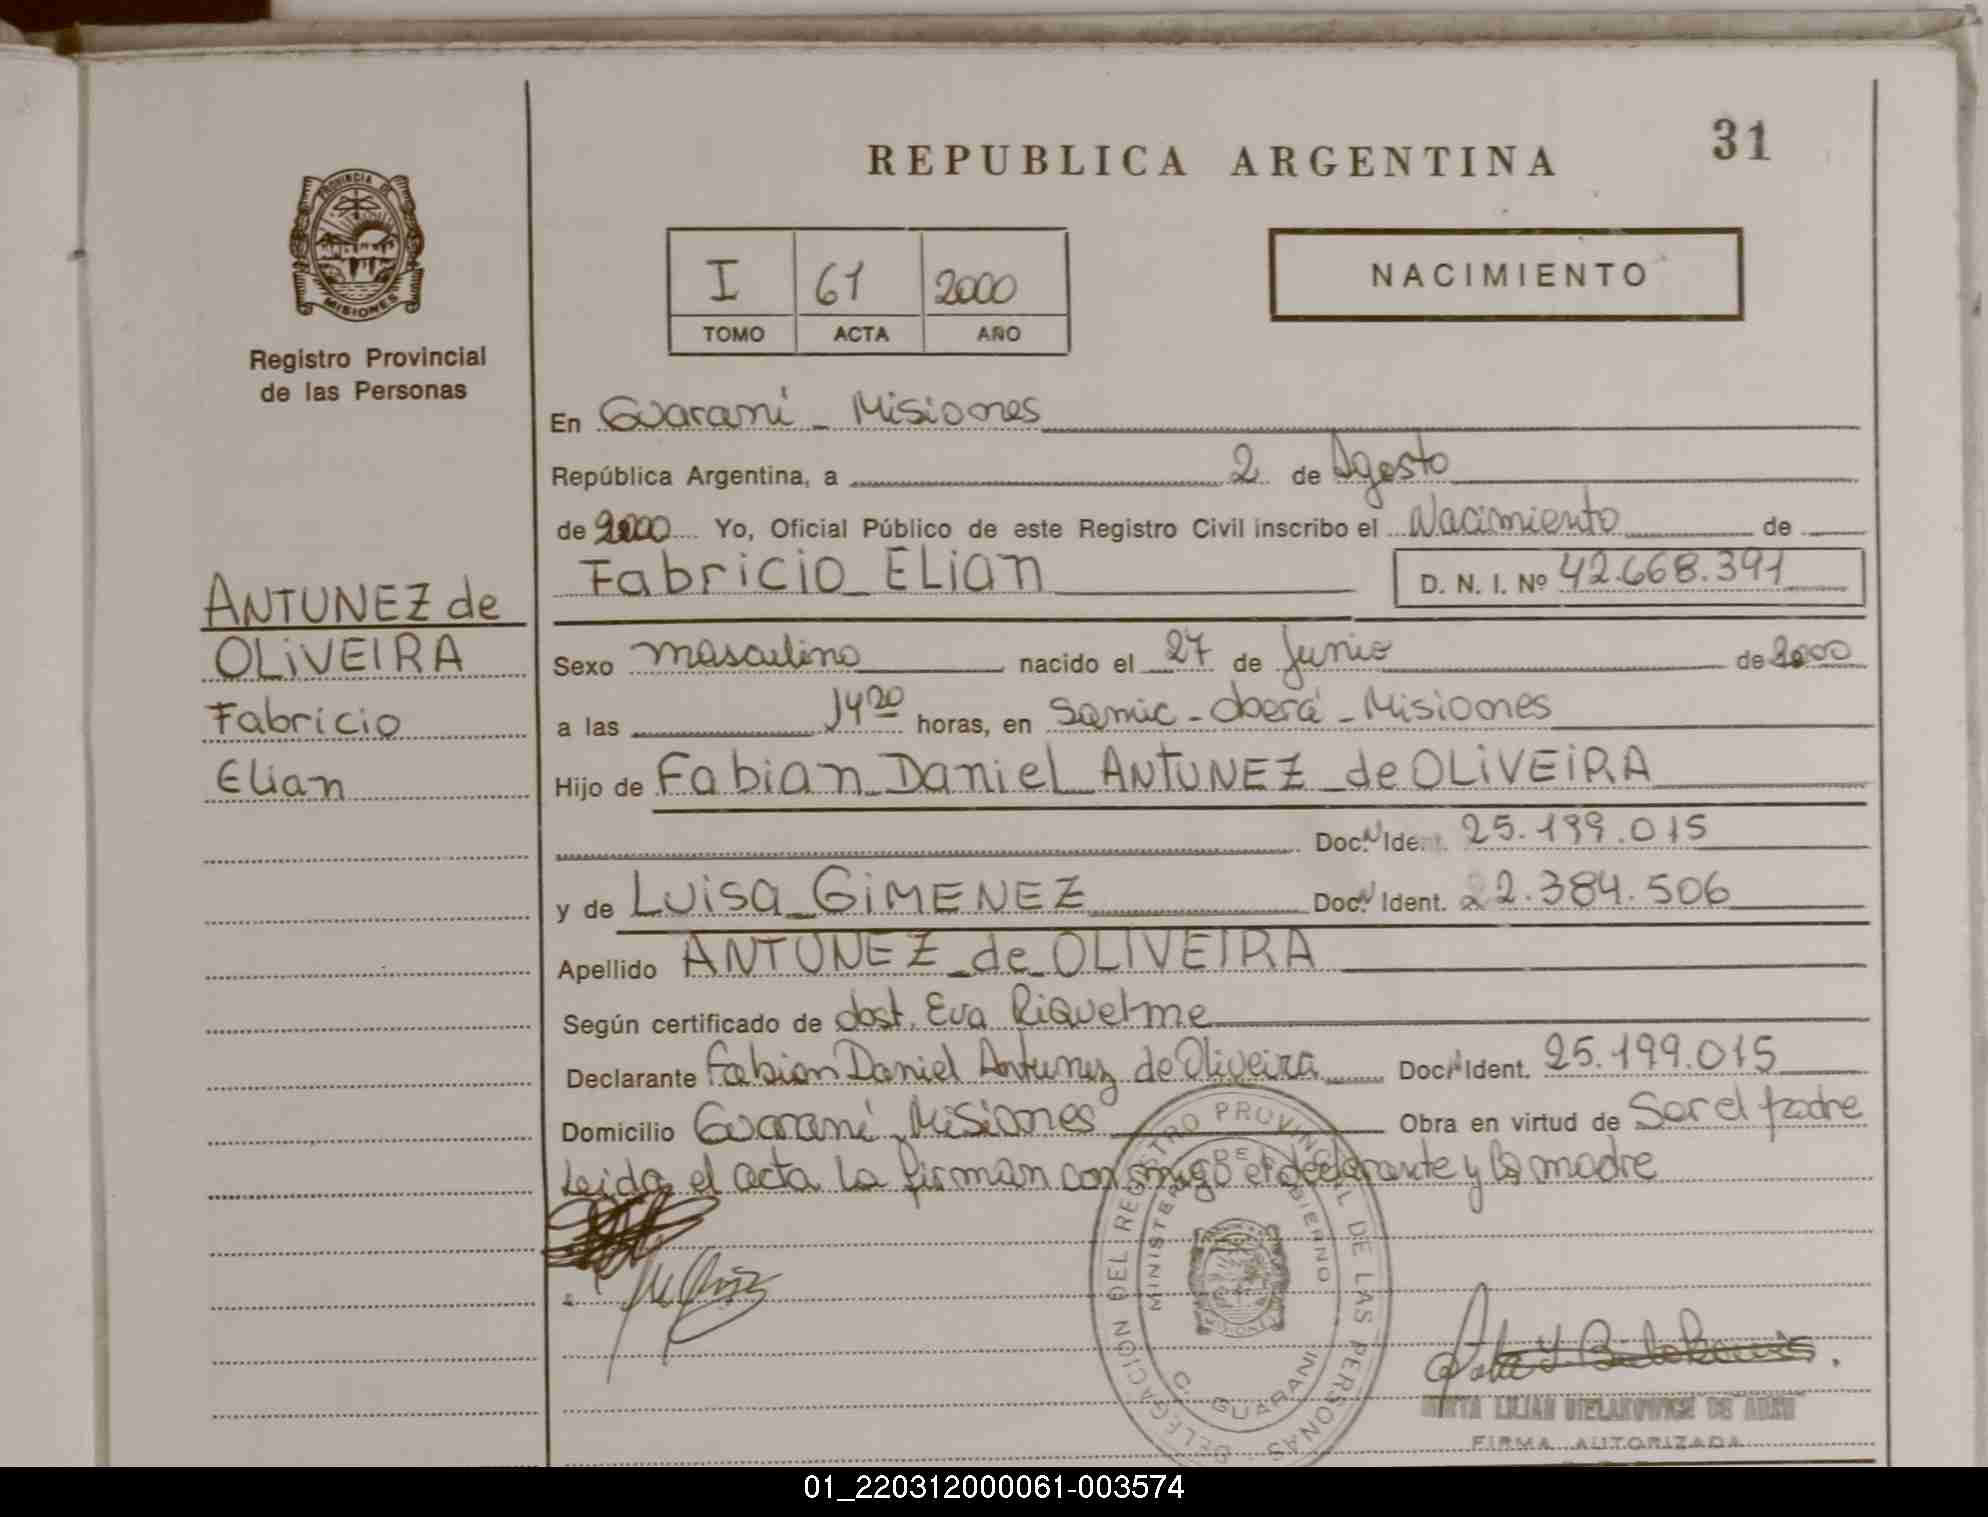 31
REPUBLICA ARGENTINA
PROVINCIA DE
MISIONES
Registro Provincial
de las Personas
I 61 2000
TOMO ACTA AÑO
NACIMIENTO
En Guaraní - Misiones
República Argentina, a 2 de Agosto
de 2000 Yo, Oficial Público de este Registro Civil inscribo el Nacimiento de
Fabricio Elian D. N. I. Nº 42.668.391
ANTUNEZ de
OLIVEIRA
Fabricio
Elian
Sexo masculino nacido el 27 de Junio de 2000
a las 14 20 horas, en Samic - Oberá - Misiones
Hijo de Fabian Daniel ANTUNEZ de OLIVEIRA
Doc. N Ident. 25.199.015
y de Luisa GIMENEZ Doc. N Ident. 22.384.506
Apellido ANTUNEZ de OLIVEIRA
Según certificado de obst. Eva Riquelme
Declarante Fabian Daniel Antunez de Oliveira Doc. N Ident. 25.199.015
Domicilio Guaraní - Misiones Obra en virtud de Ser el padre
Leida el acta la firman conmigo el declarante y la madre
DELEGACION DEL REGISTRO PROVINCIAL DE LAS PERSONAS
MINISTERIO DE GOBIERNO
C. GUARANI
MISIONES
LILIAN BIELAKOWICZ DE
FIRMA AUTORIZADA
01_220312000061-003574